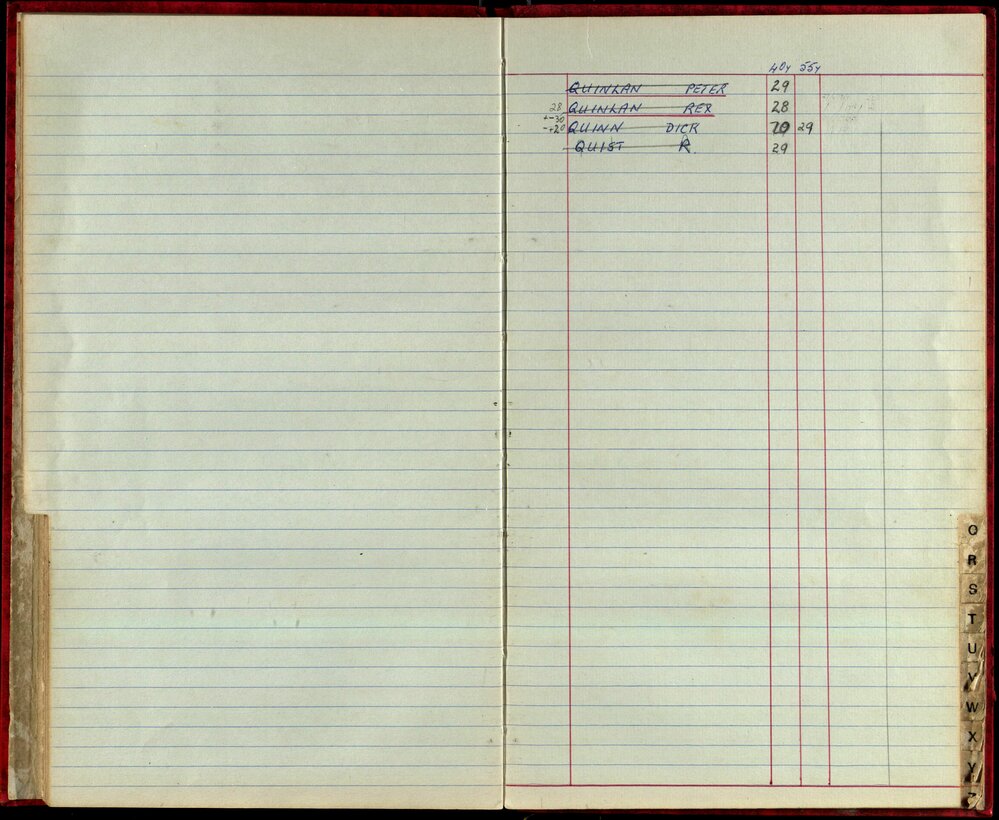 40y 55y
QUINLAN PETER 29
28 QUINLAN REX 28
+-30
-+20 QUINN DICK 29
QUIST R. 29
Q
R
S
T
U
V
W
X
Y
Z